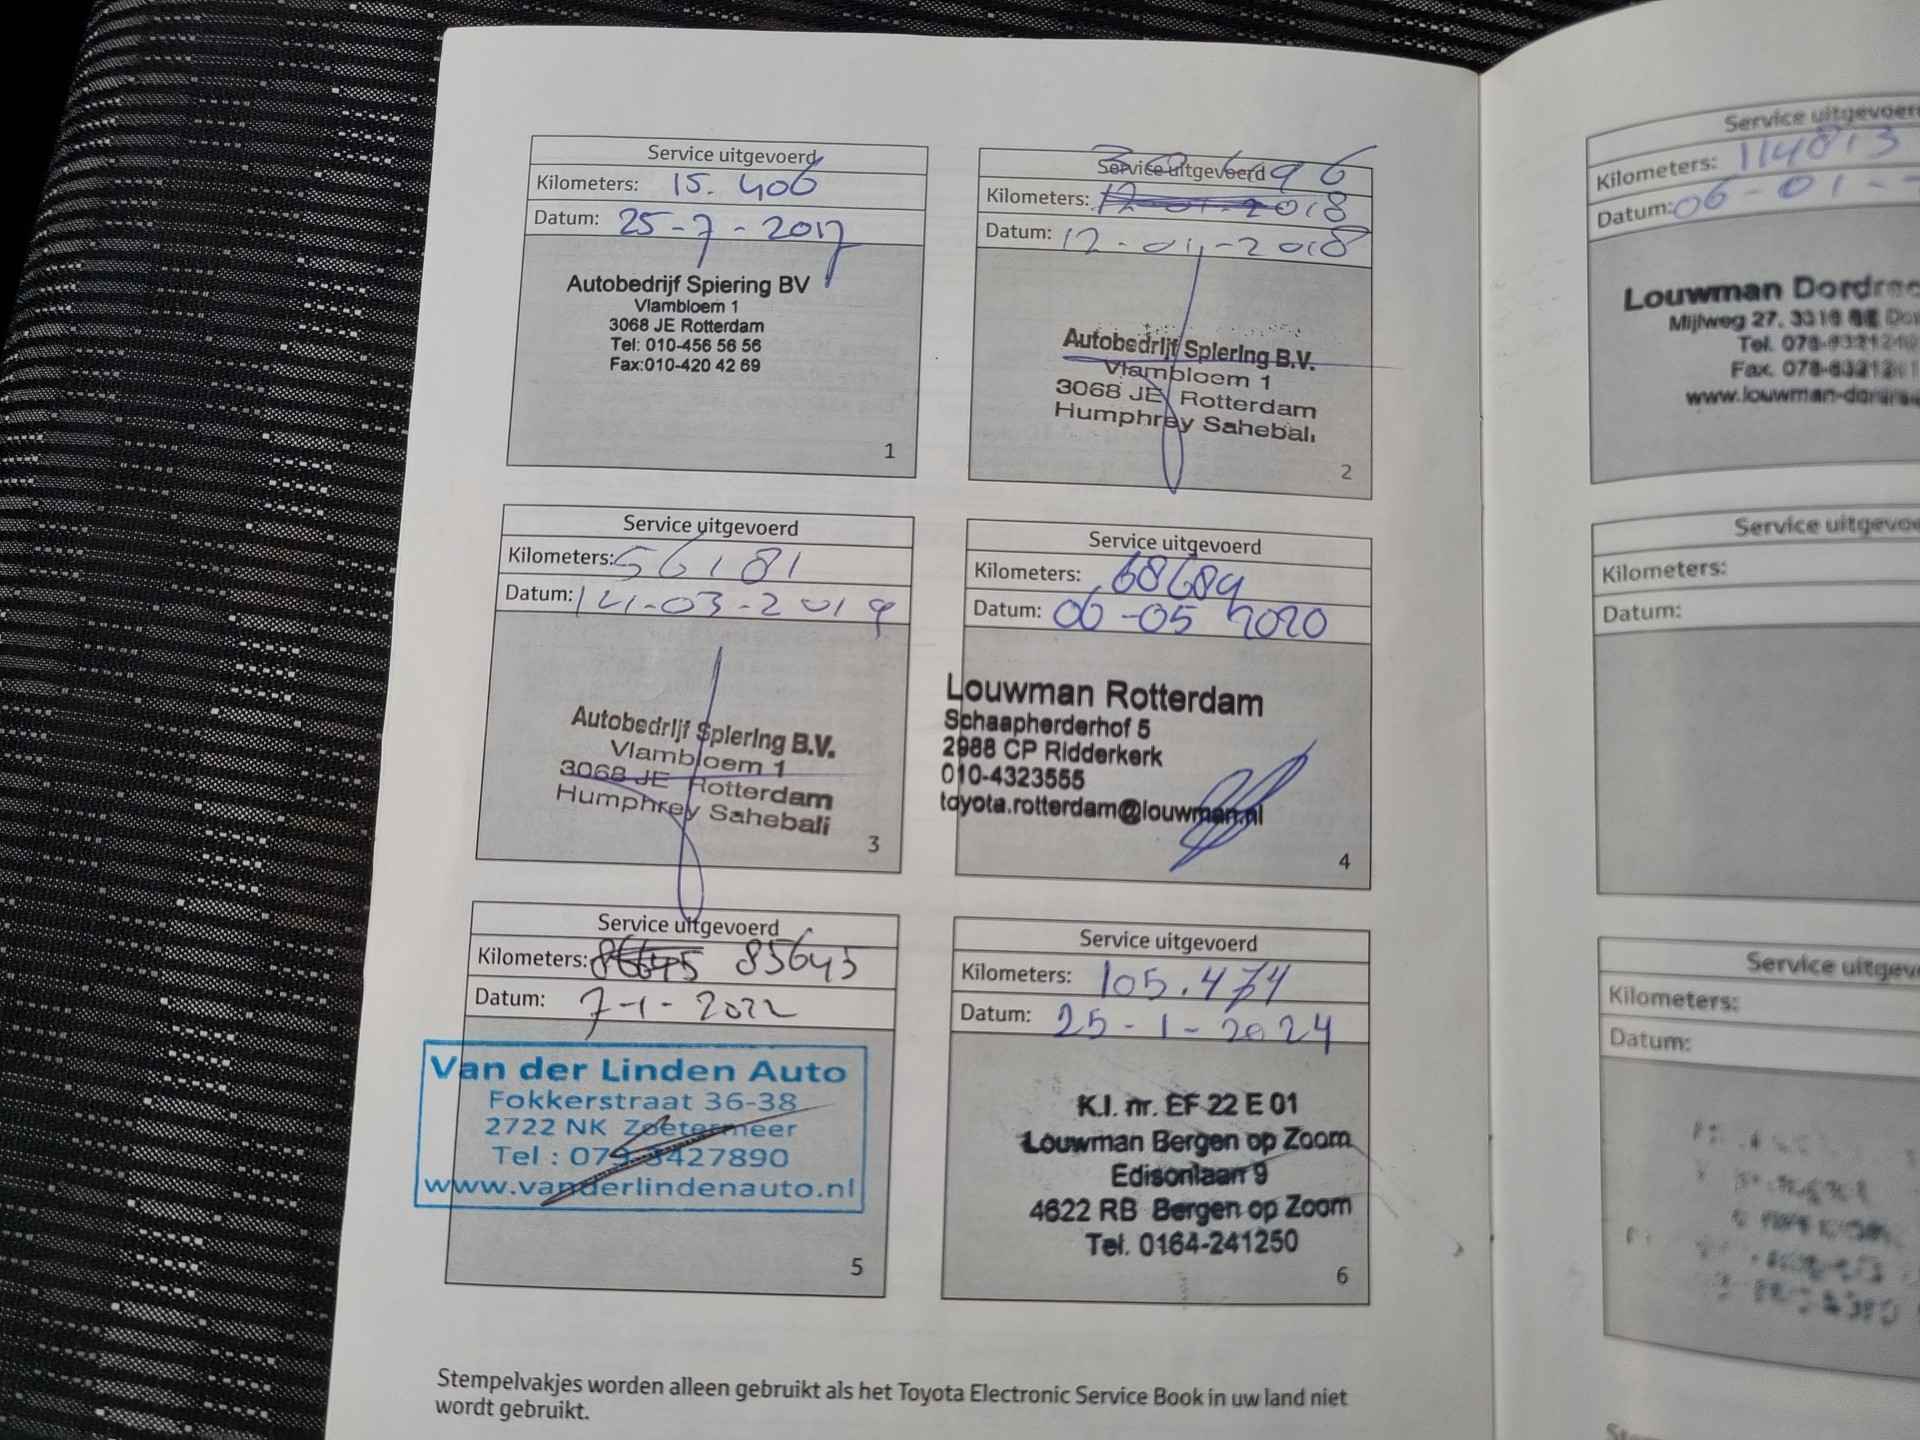 Service uitgevoerd
Kilometers: 15.406
Datum: 25-7-2017
Autobedrijf Spiering BV
Vlambloem 1
3068 JE Rotterdam
Tel: 010-456 56 56
Fax:010-420 42 69
1
Service uitgevoerd
Kilometers:
Datum: 12-01-2018
Autobedrijf Spiering B.V.
Vlambloem 1
3068 JE Rotterdam
Humphrey Sahebali
2
Service uitgevoerd
Kilometers: 56181
Datum: 14-03-2019
Autobedrijf Spiering B.V.
Vlambloem 1
3068 JE Rotterdam
Humphrey Sahebali
3
Service uitgevoerd
Kilometers: 68689
Datum: 06-05 2020
Louwman Rotterdam
Schaapherderhof 5
2988 CP Ridderkerk
010-4323555
toyota.rotterdam@louwman.nl
4
Service uitgevoerd
Kilometers: 85645
Datum: 7-1-2022
Van der Linden Auto
Fokkerstraat 36-38
2722 NK Zoetermeer
Tel : 079-3427890
www.vanderlindenauto.nl
5
Service uitgevoerd
Kilometers: 105.474
Datum: 25-1-2024
K.I. nr. EF 22 E 01
Louwman Bergen op Zoom
Edisonlaan 9
4622 RB Bergen op Zoom
Tel. 0164-241250
6
Stempelvakjes worden alleen gebruikt als het Toyota Electronic Service Book in uw land niet
wordt gebruikt.
Service uitgevoerd
Kilometers: 114813
Datum: 06-01-
Louwman
Mijlweg 27,
Tel.
Fax.
Service
Kilometers:
Datum:
Service
Kilometers:
Datum: